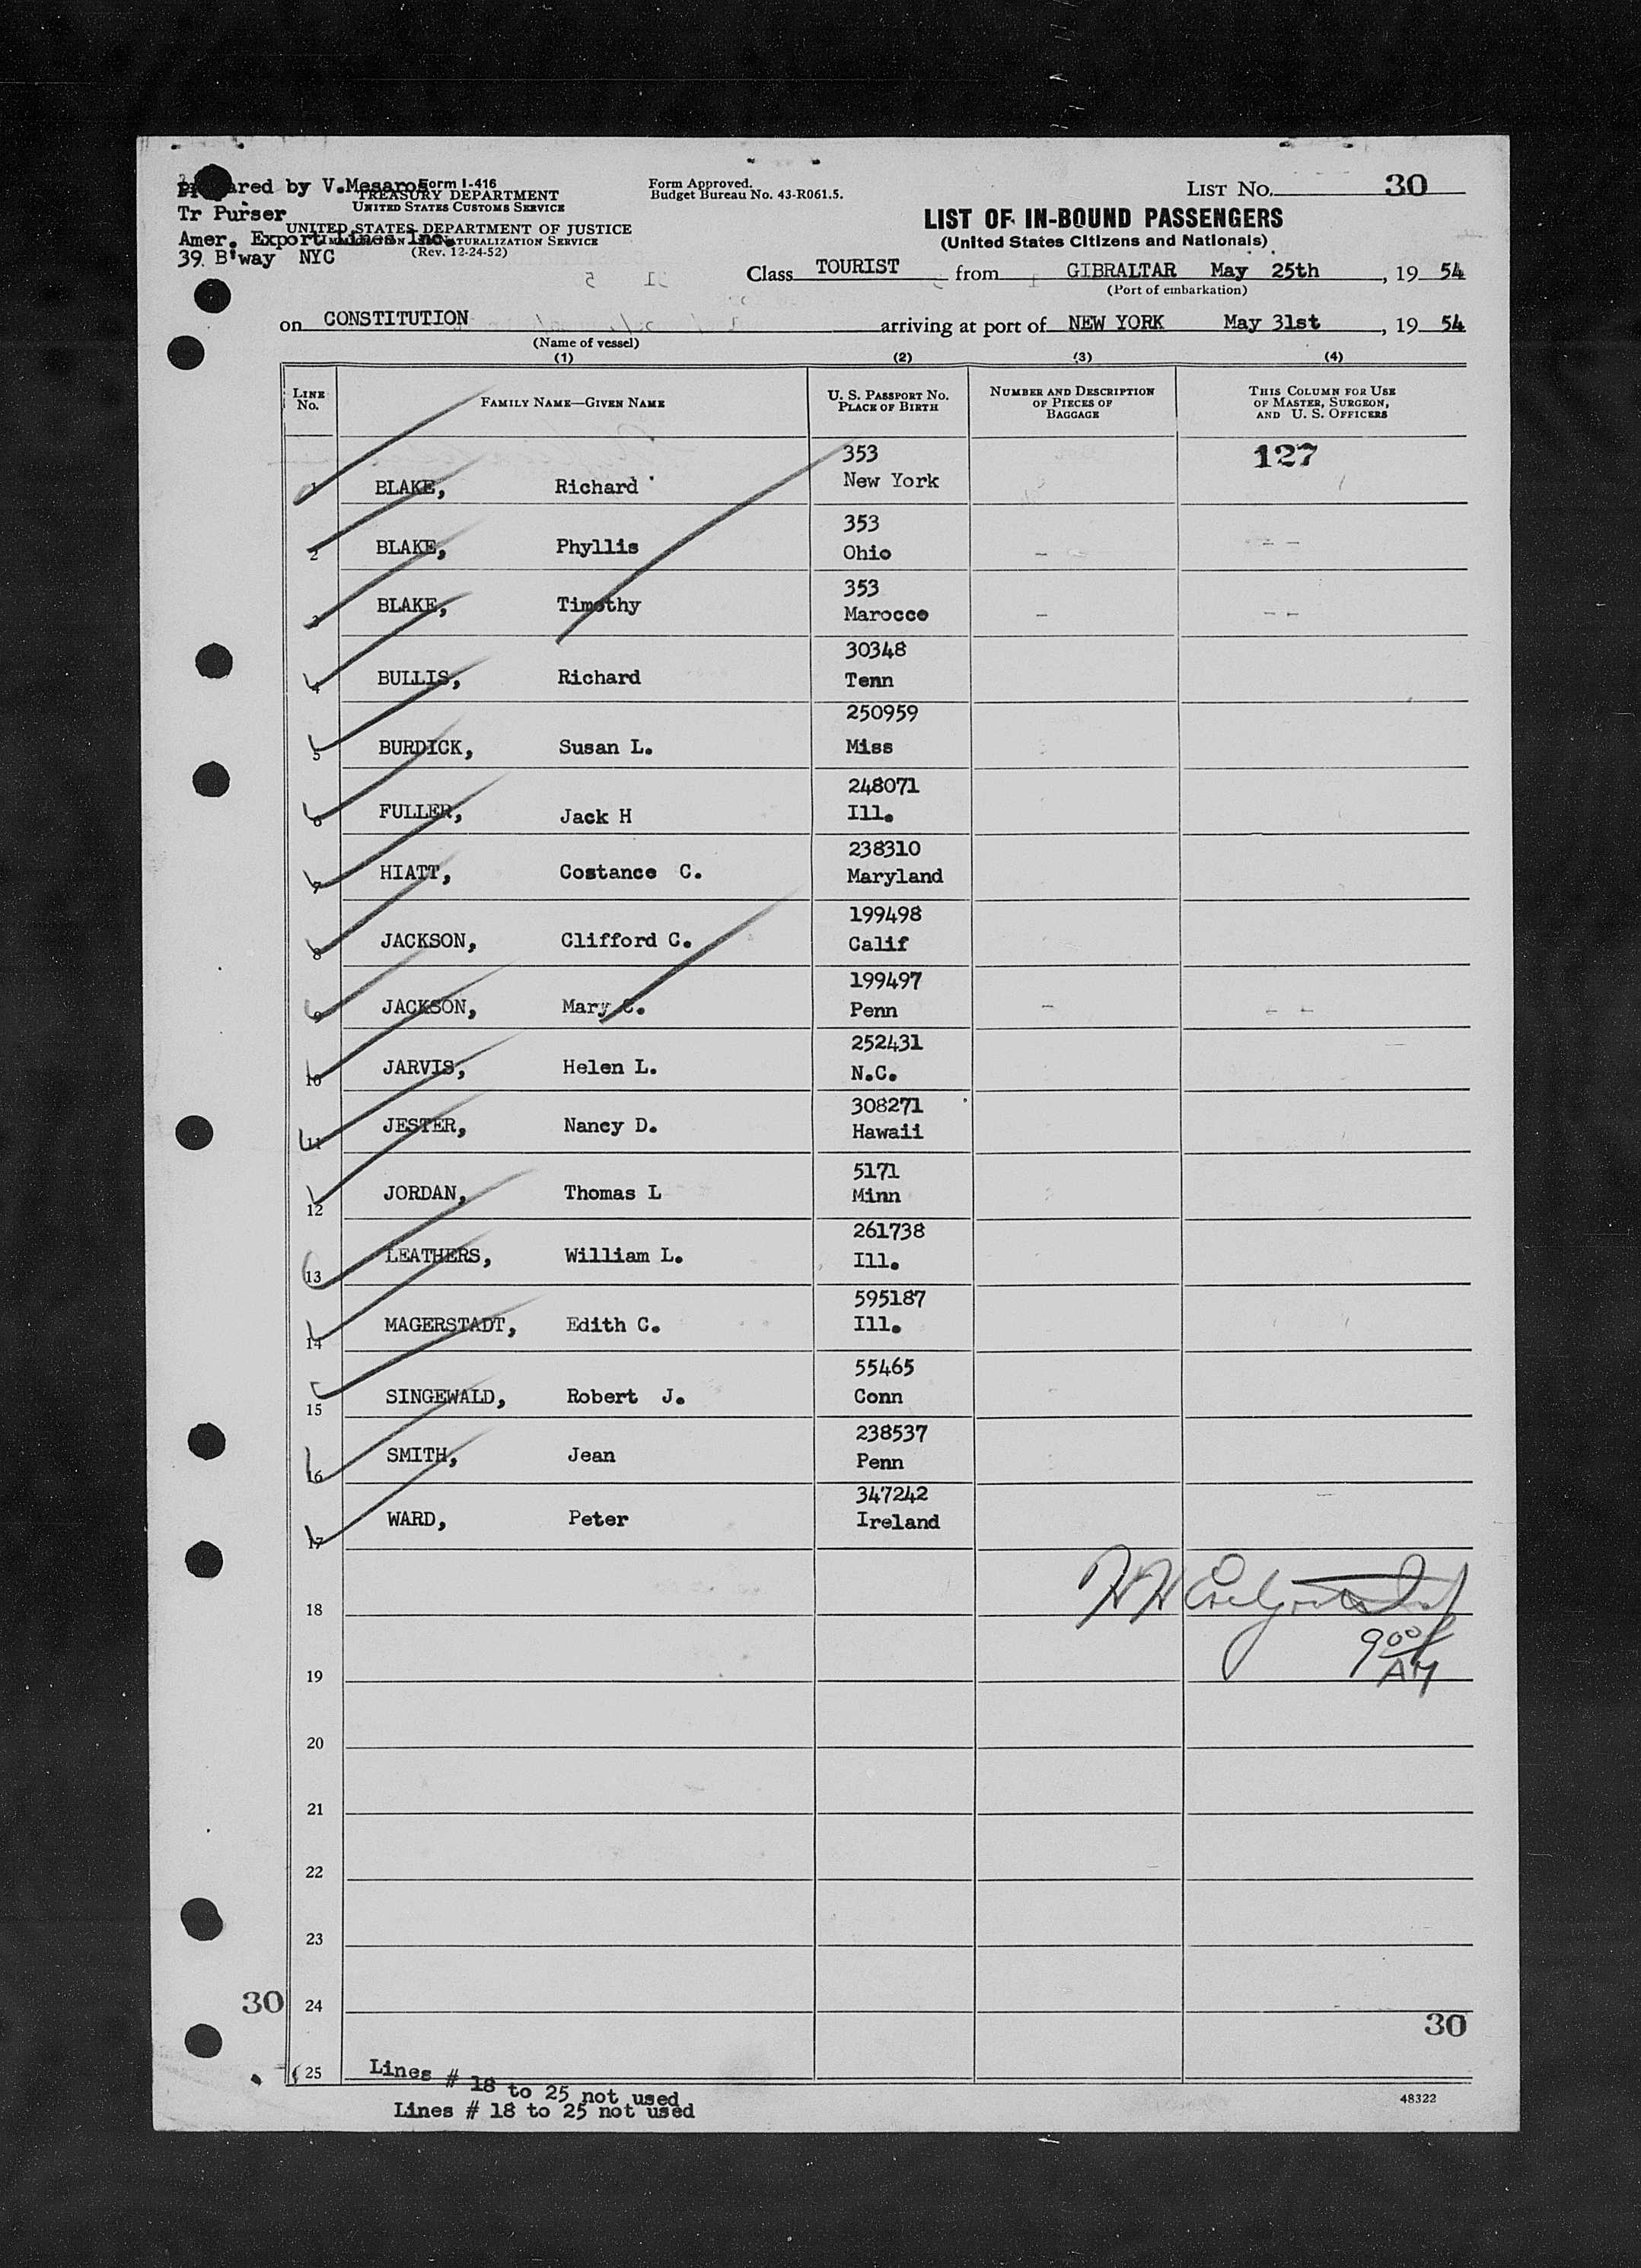 Prepared by V.Mesaros
Form I-416
TREASURY DEPARTMENT
UNITED STATES CUSTOMS SERVICE
Tr Purser
UNITED STATES DEPARTMENT OF JUSTICE
Amer. Export Lines Inc.
IMMIGRATION AND NATURALIZATION SERVICE
39. B'way NYC
(Rev. 12-24-52)
Form Approved.
Budget Bureau No. 43-R061.5.
LIST No. 30
LIST OF IN-BOUND PASSENGERS
(United States Citizens and Nationals)
Class TOURIST from GIBRALTAR May 25th, 19 54
(Port of embarkation)
on CONSTITUTION arriving at port of NEW YORK May 31st, 19 54
(Name of vessel)
(1) (2) (3) (4)
LINE NO. FAMILY NAME—GIVEN NAME U. S. PASSPORT NO. PLACE OF BIRTH NUMBER AND DESCRIPTION OF PIECES OF BAGGAGE THIS COLUMN FOR USE OF MASTER, SURGEON, AND U. S. OFFICERS
353 127
1 BLAKE, Richard New York
353
2 BLAKE, Phyllis Ohio
353
3 BLAKE, Timothy Marocco
30348
4 BULLIS, Richard Tenn
250959
5 BURDICK, Susan L. Miss
248071
6 FULLER, Jack H Ill.
238310
7 HIATT, Costance C. Maryland
199498
8 JACKSON, Clifford C. Calif
199497
9 JACKSON, Mary C. Penn
252431
10 JARVIS, Helen L. N.C.
308271
11 JESTER, Nancy D. Hawaii
5171
12 JORDAN, Thomas L Minn
261738
13 LEATHERS, William L. Ill.
595187
14 MAGERSTADT, Edith C. Ill.
55465
15 SINGEWALD, Robert J. Conn
238537
16 SMITH, Jean Penn
347242
17 WARD, Peter Ireland
18
900
AM
19
20
21
22
23
30 24
30
25 Lines # 18 to 25 not used
Lines # 18 to 25 not used
48322